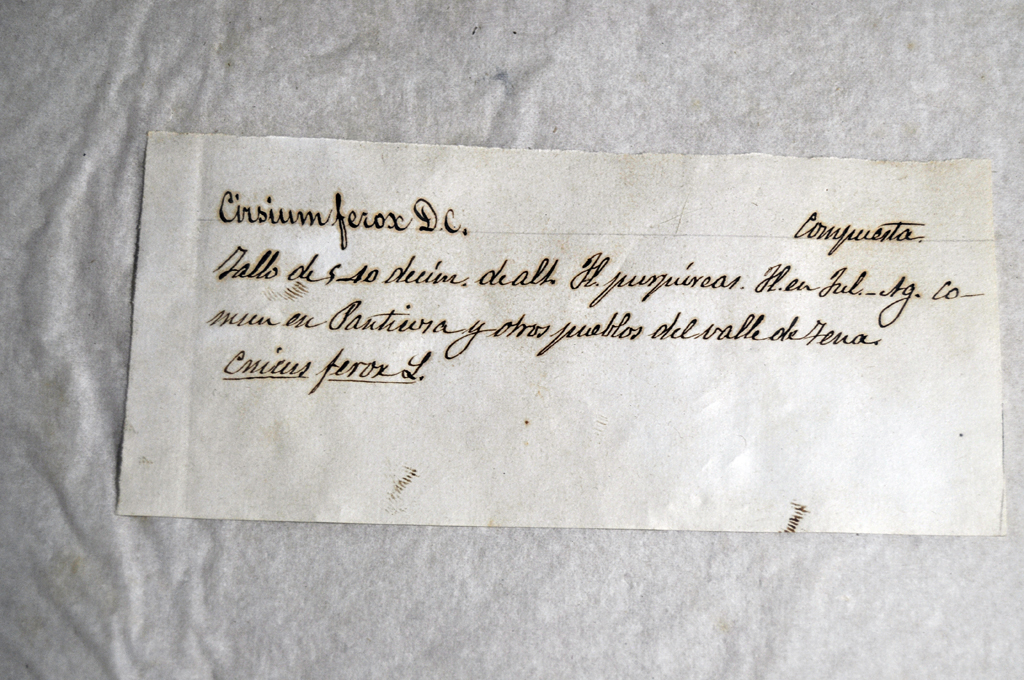 Cirsium ferox D.C. Compuesta.
Tallo de 5-10 decim. de alt. Fl. purpúreas. Fl. en Jul.-Ag. Co-
mun en Panticosa y otros pueblos del valle de Tena.
Cnicus ferox L.